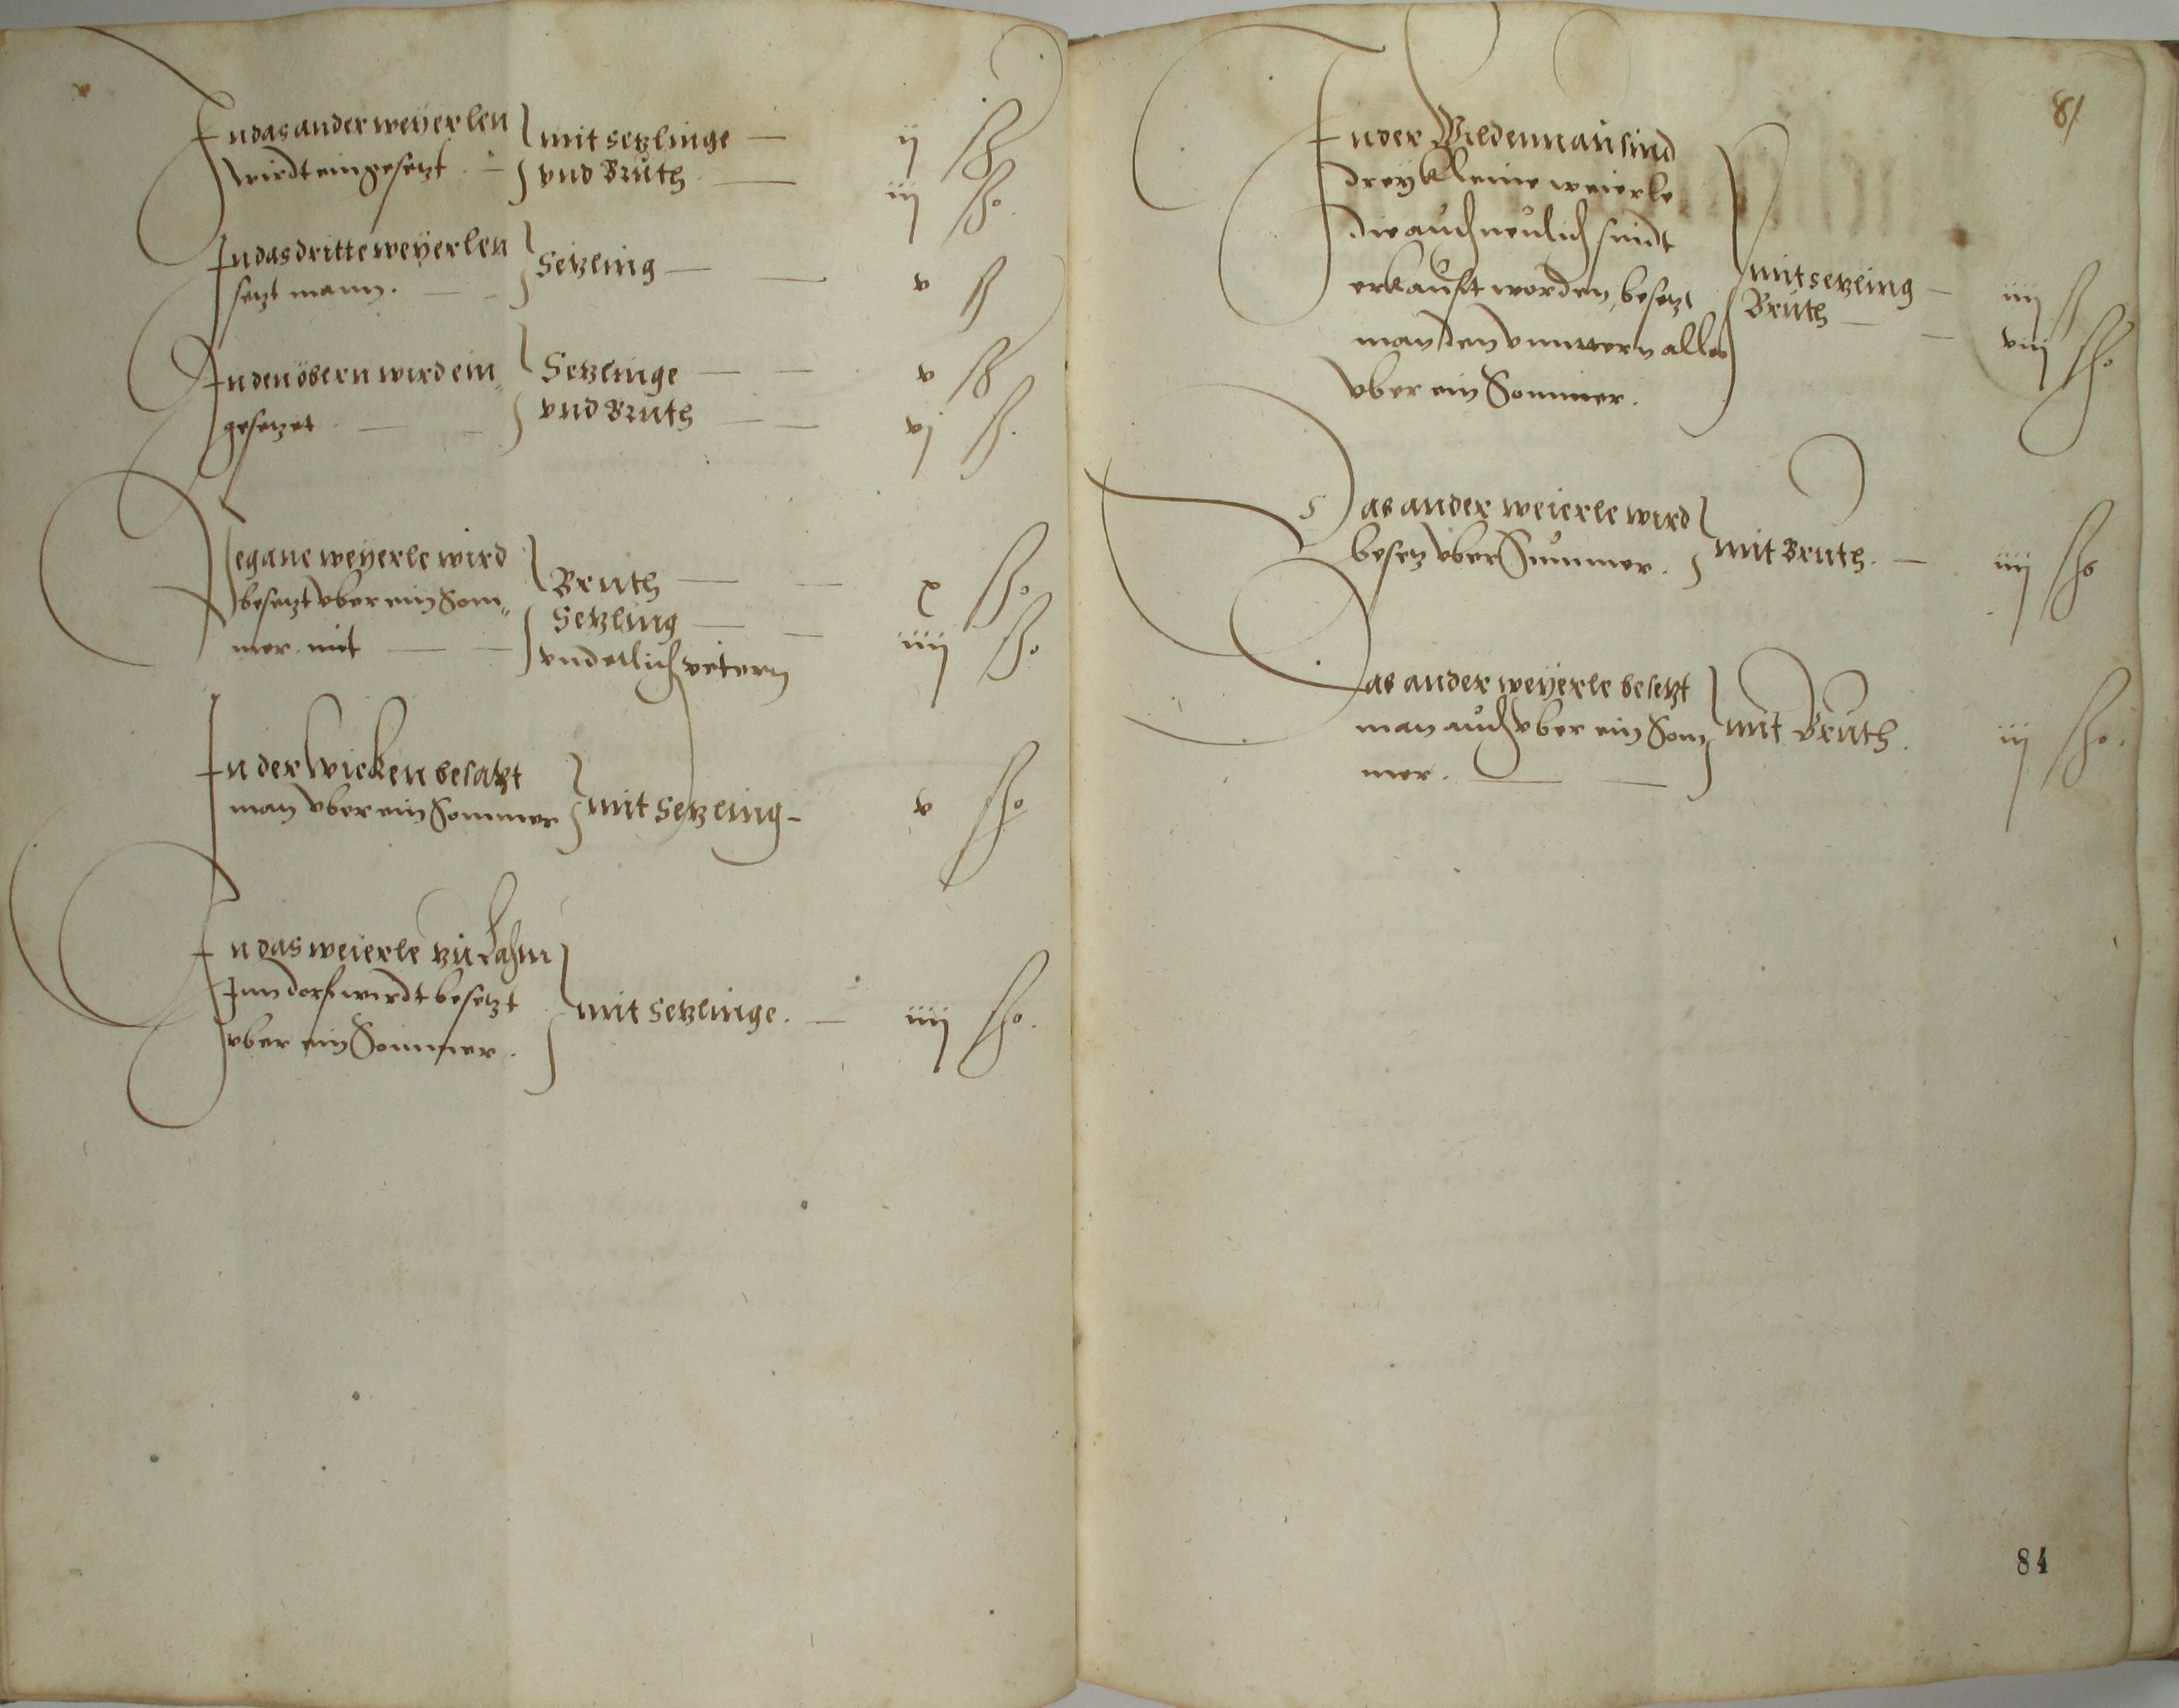 In das ander weyerlen
wirdt eingesetzt
mit setzlinge ij ß
vnd Bruth iij ßo.
In das dritte weyerlen
setzt mann.
Setzling v ß
In den öbern wird ein„
gesetzet
Setzlinge v ß
vnd Bruth vj ß.
weyerle wird
besetzt vber ein Som„
mer mit
Bruth x ßo
Setzling iiij ßo.
vnd etlich
In der Wicken besatzt
man vber ein Sommer
mit setzling v ßo
In das weierle zu Lahm
Inn dorf wirdt besetzt
vber ein Sommer.
mit setzlinge. iiij ßo.
81
In der Wildennau sind
drey kleine weierle
die auch neulich sindt
erkaufft worden, besetzt
man den vnnttern alles
vber ein Sommer.
mit setzling iiij ß
Bruth viij ßo
Das ander weierle wird
besetz vber Summer.
mit Bruth. iiij ßo
Das ander weyerle besetzt
man auch vber ein Som
mer.
mit Bruth. iij ßo.
84